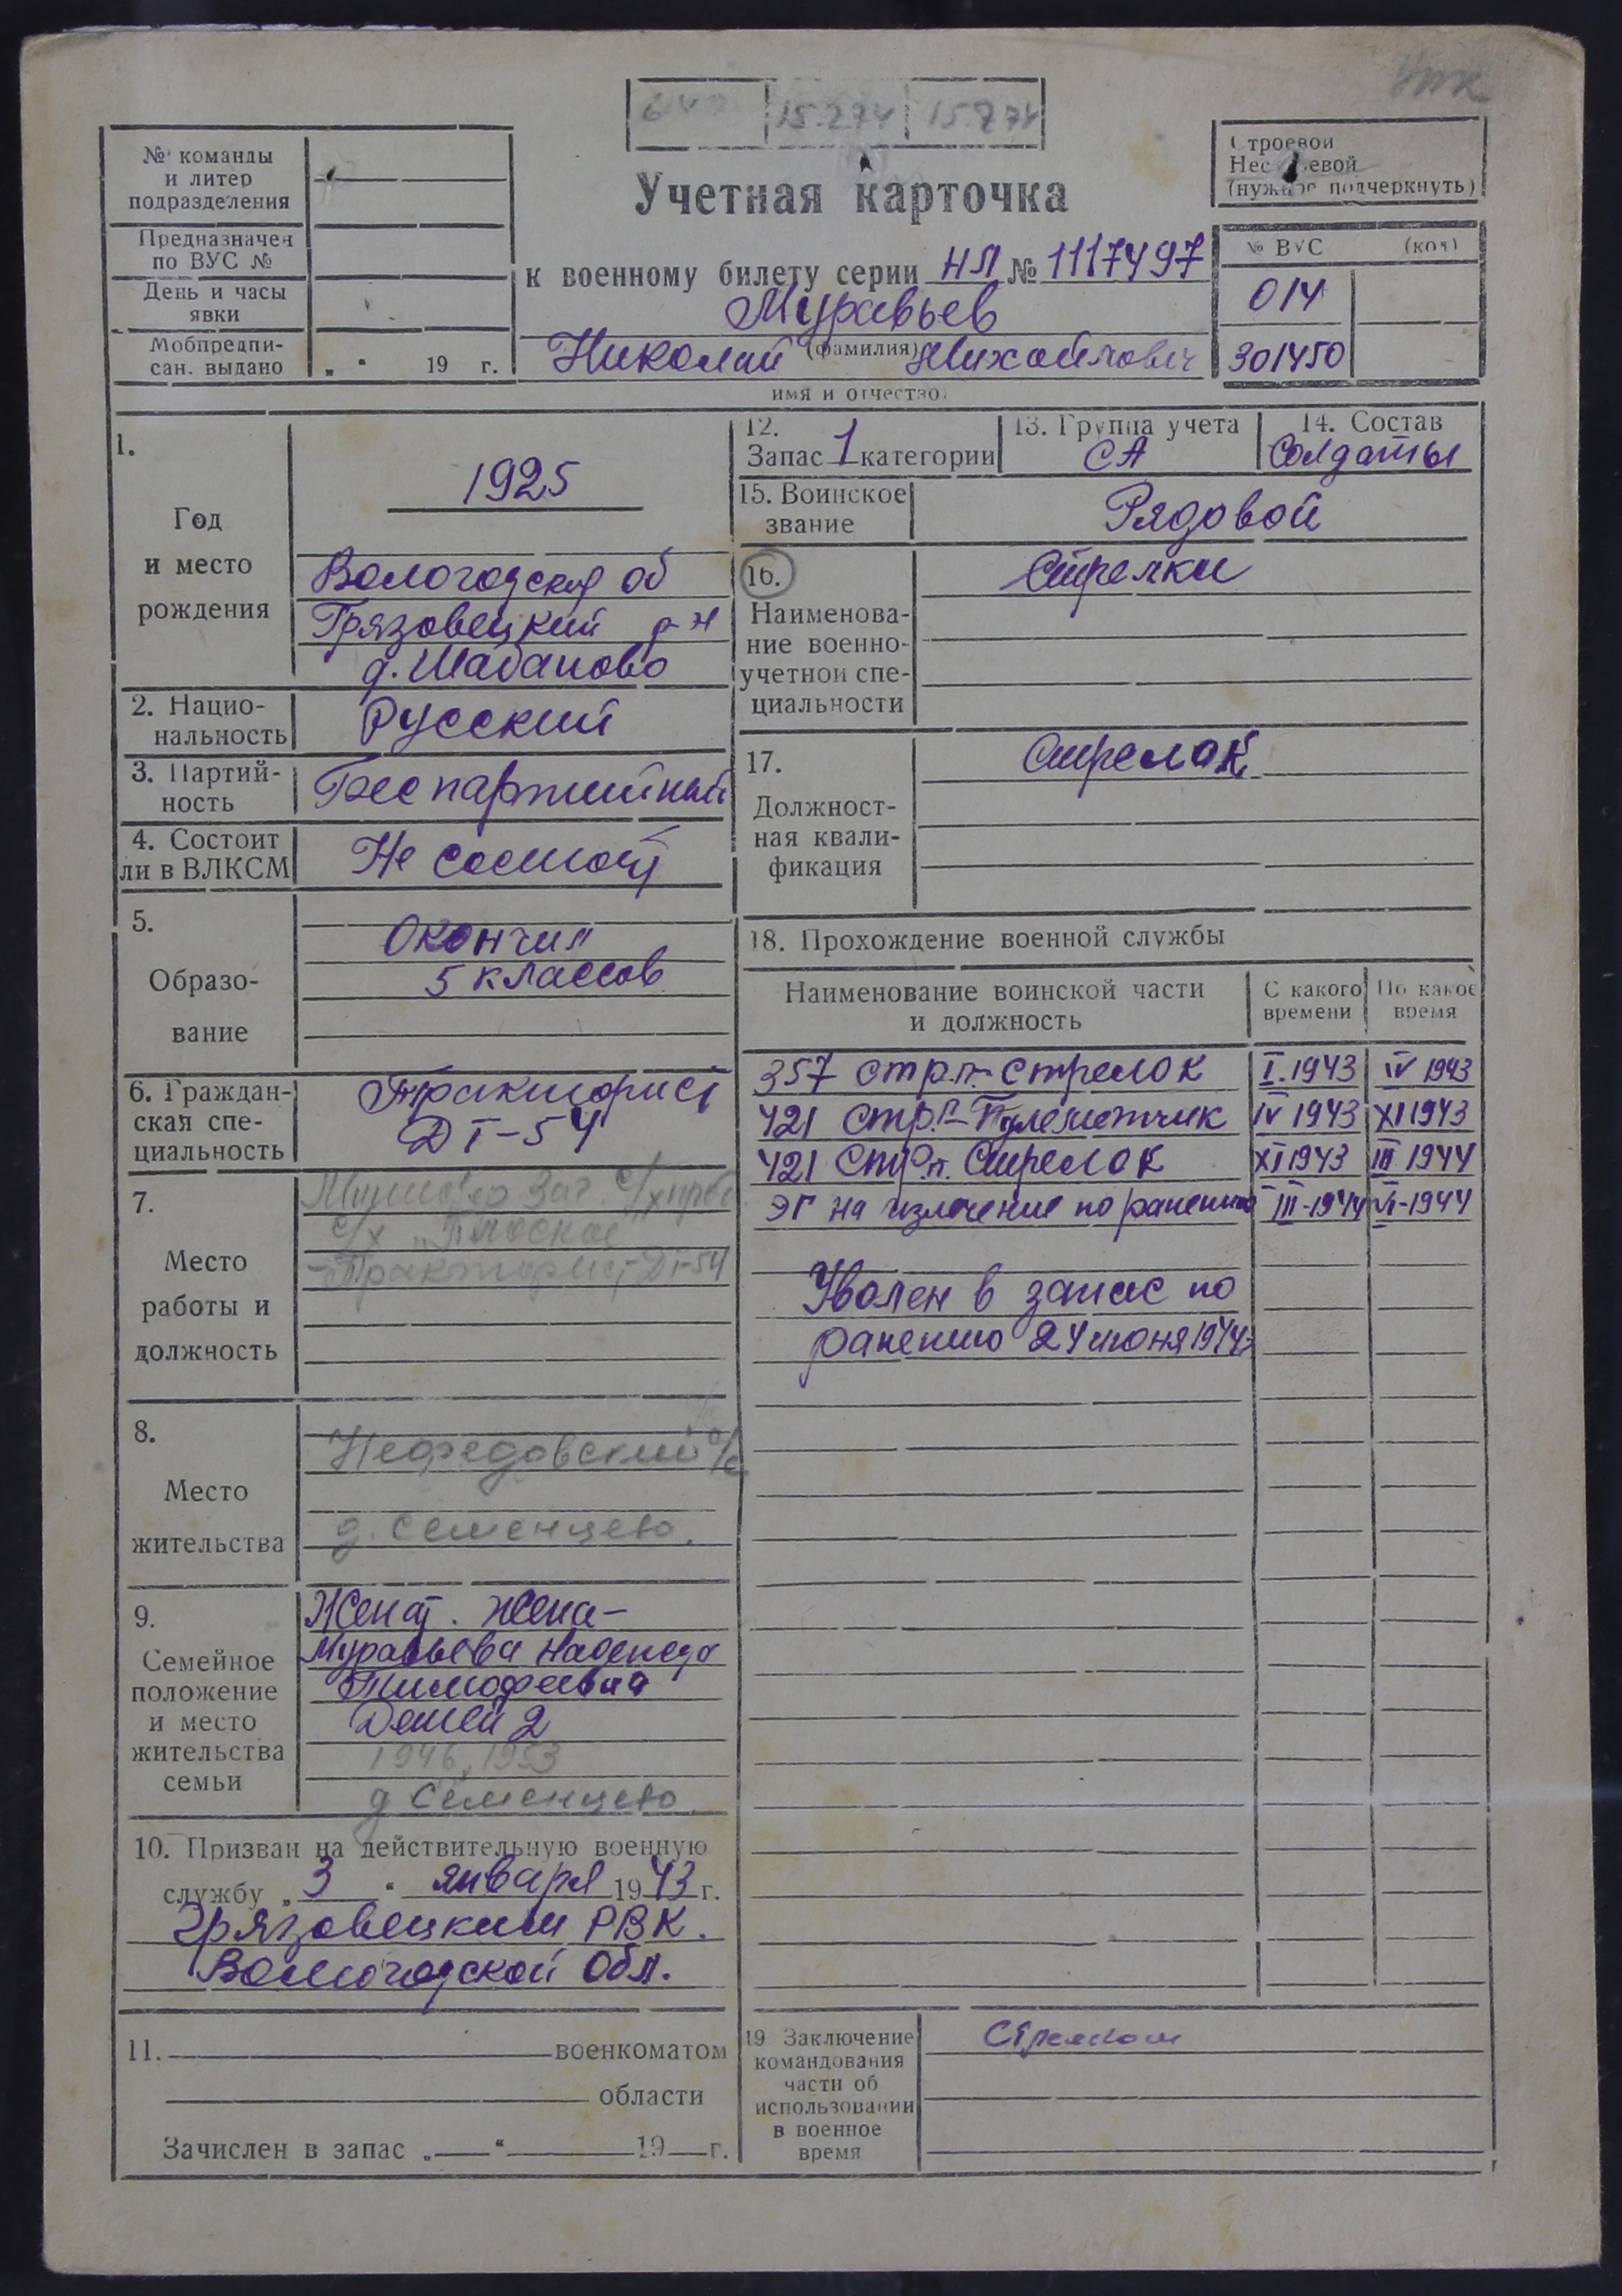 15.274 15.874
№ команды
и литер
подразделения
Предназначен
по ВУС №
День и часы
явки
Мобпредпи-
сан. выдано „ “ 19 г.
Учетная карточка
к военному билету серии НЛ № 1117497
Муравьев
(фамилия)
Николай Михайлович
имя и отчество
Строевой
Нестроевой
(нужное подчеркнуть)
№ ВУС (код)
014
301450
1.
Год
и место
рождения
1925
Вологодская об
Грязовецкий р-н
д. Шабаново
2. Нацио-
нальность
Русский
3. Партий-
ность
Беспартийный
4. Состоит
ли в ВЛКСМ
Не состоит
5.
Образо-
вание
Окончил
5 классов
6. Граждан-
ская спе-
циальность
Тракторист
ДТ-54
7.
Место
работы и
должность
с/х „Плоское“
-Тракторист ДТ-54
8.
Место
жительства
Нефедовский с/с
д. Семенцево.
9.
Семейное
положение
и место
жительства
семьи
Женат. Жена-
Муравьева Надежда
Тимофеевна
Детей 2
1946, 1953
д Семенцево
10. Призван на действительную военную
службу „ 3 “ января 1943 г.
Грязовецким РВК.
Вологодской Обл.
11. военкоматом
области
Зачислен в запас „ “ 19 г.
12.
Запас 1 категории
13. Группа учета
СА
14. Состав
Солдаты
15. Воинское
звание
Рядовой
16.
Наименова-
ние военно-
учетной спе-
циальности
Стрелки
17.
Должност-
ная квали-
фикация
Стрелок
18. Прохождение военной службы
Наименование воинской части
и должность
С какого
времени
По какое
время
357 стр.п-стрелок I.1943 IV 1943
421 стр.п-Пулеметчик IV 1943 XI 1943
421 Стр.п. Стрелок XI 1943 III 1944
ЭГ на излечение по ранению III-1944 VI-1944
Уволен в запас по
ранению 24 июня 1944г
19 Заключение
командования
части об
использовании
в военное
время
Стрелком